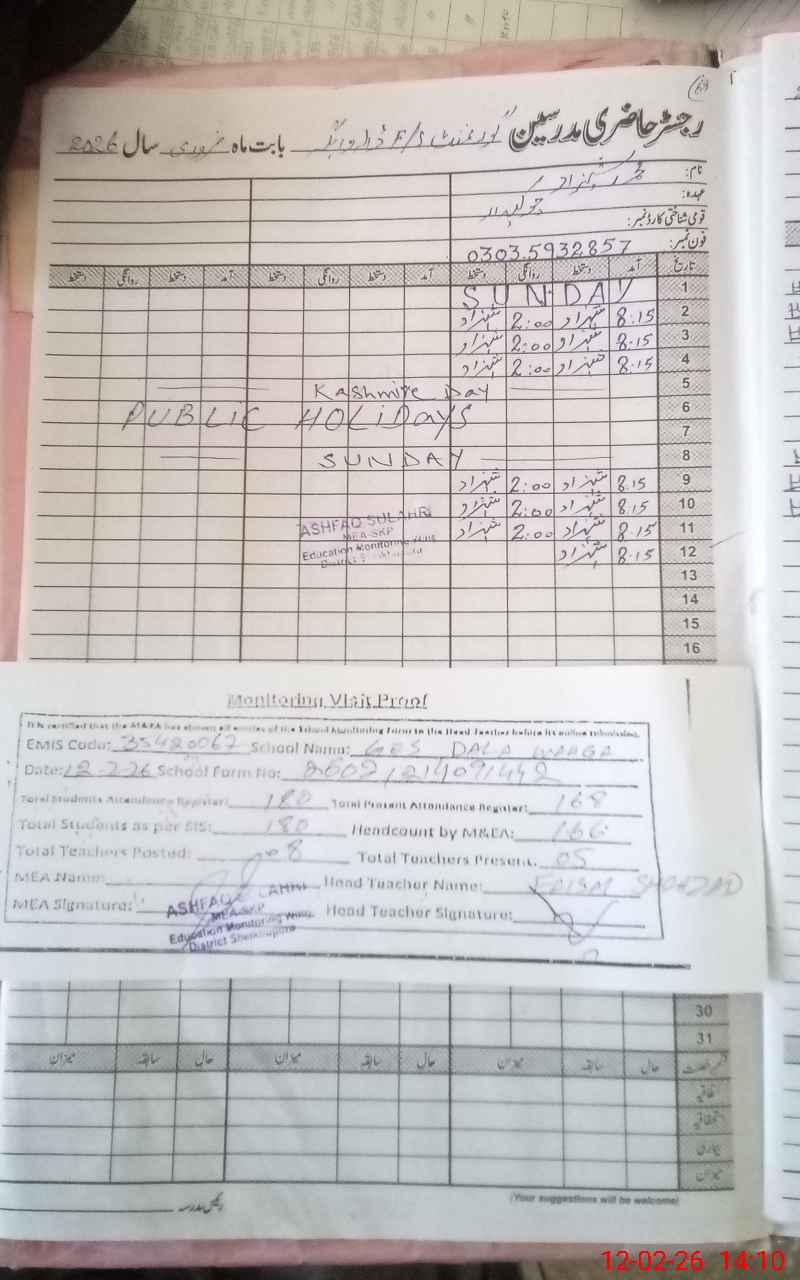 رجسٹر حاضری مدرسین گورنمنٹ E/S ڈالا واہگہ بابت ماہ فروری سال 2026
نام: محمد شہزاد
عہدہ: چوکیدار
قومی شناختی کارڈ نمبر:
فون نمبر: 03035932857
تاریخ آمد دستخط روانگی دستخط آمد دستخط روانگی دستخط آمد دستخط روانگی دستخط
1 SUNDAY
2 8:15 شہزاد 2:00 شہزاد
3 8:15 شہزاد 2:00 شہزاد
4 8:15 شہزاد 2:00 شہزاد
5 Kashmire Day
6 PUBLIC HOLIDAYS
7
8 SUNDAY
9 8:15 شہزاد 2:00 شہزاد
10 8:15 شہزاد 2:00 شہزاد
11 8:15 شہزاد 2:00 شہزاد
12 8:15 شہزاد
ASHFAQ SULAHRI
MEA-SKP
Education Monitoring Wing
District Sheikhupura
13
14
15
16
Monitoring Visit Proof
It is certified that the M&EA has shown all entries of the School Monitoring Form to the Head Teacher before its online submission.
EMIS Code: 35420067 School Name: GES DALA WAAGA
Date: 12-2-26 School Form No: 26021214091442
Total Students Attendance Register: 180 Total Present Attendance Register: 168
Total Students as per SIS: 180 Headcount by M&EA: 166
Total Teachers Posted: 08 Total Teachers Present: 05
MEA Name: Head Teacher Name: SHAHZAD
MEA Signature: Head Teacher Signature:
ASHFAQ SULAHRI
MEA-SKP
Education Monitoring Wing
District Sheikhupura
30
31
قسم رخصت حال سابقہ میزان حال سابقہ میزان حال سابقہ میزان
اتفاقیہ
استحقاقیہ
بیماری
میزان
(Your suggestions will be welcome)
12-02-26 14:10